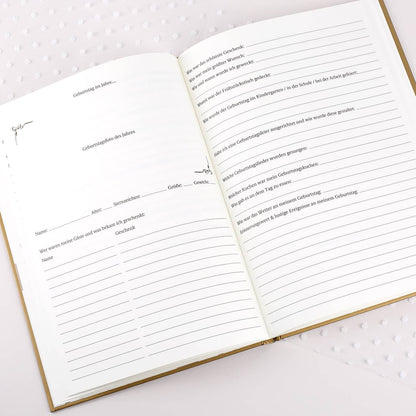 Geburtstag im Jahre....
Geburtstagsfoto des Jahres
Name: Alter: Sternzeichen: Größe: Gewicht:
Wer waren meine Gäste und was bekam ich geschenkt:
Name Geschenk
Wie war das schönste Geschenk:
Wie war mein größter Wunsch:
Wie und wann wurde ich geweckt:
Womit war der Frühstückstisch gedeckt:
Wie wurde der Geburtstag im Kindergarten / in der Schule / bei der Arbeit gefeiert:
Habe ich eine Geburtstagsfeier ausgerichtet und wie wurde diese gestaltet:
Welche Geburtstagslieder wurden gesungen:
Welchen Kuchen war mein Geburtstagskuchen:
Wie gab es an dem Tag zu essen:
Wie war das Wetter an meinem Geburtstag:
Erinnerungswert & lustige Ereignisse an meinem Geburtstag: